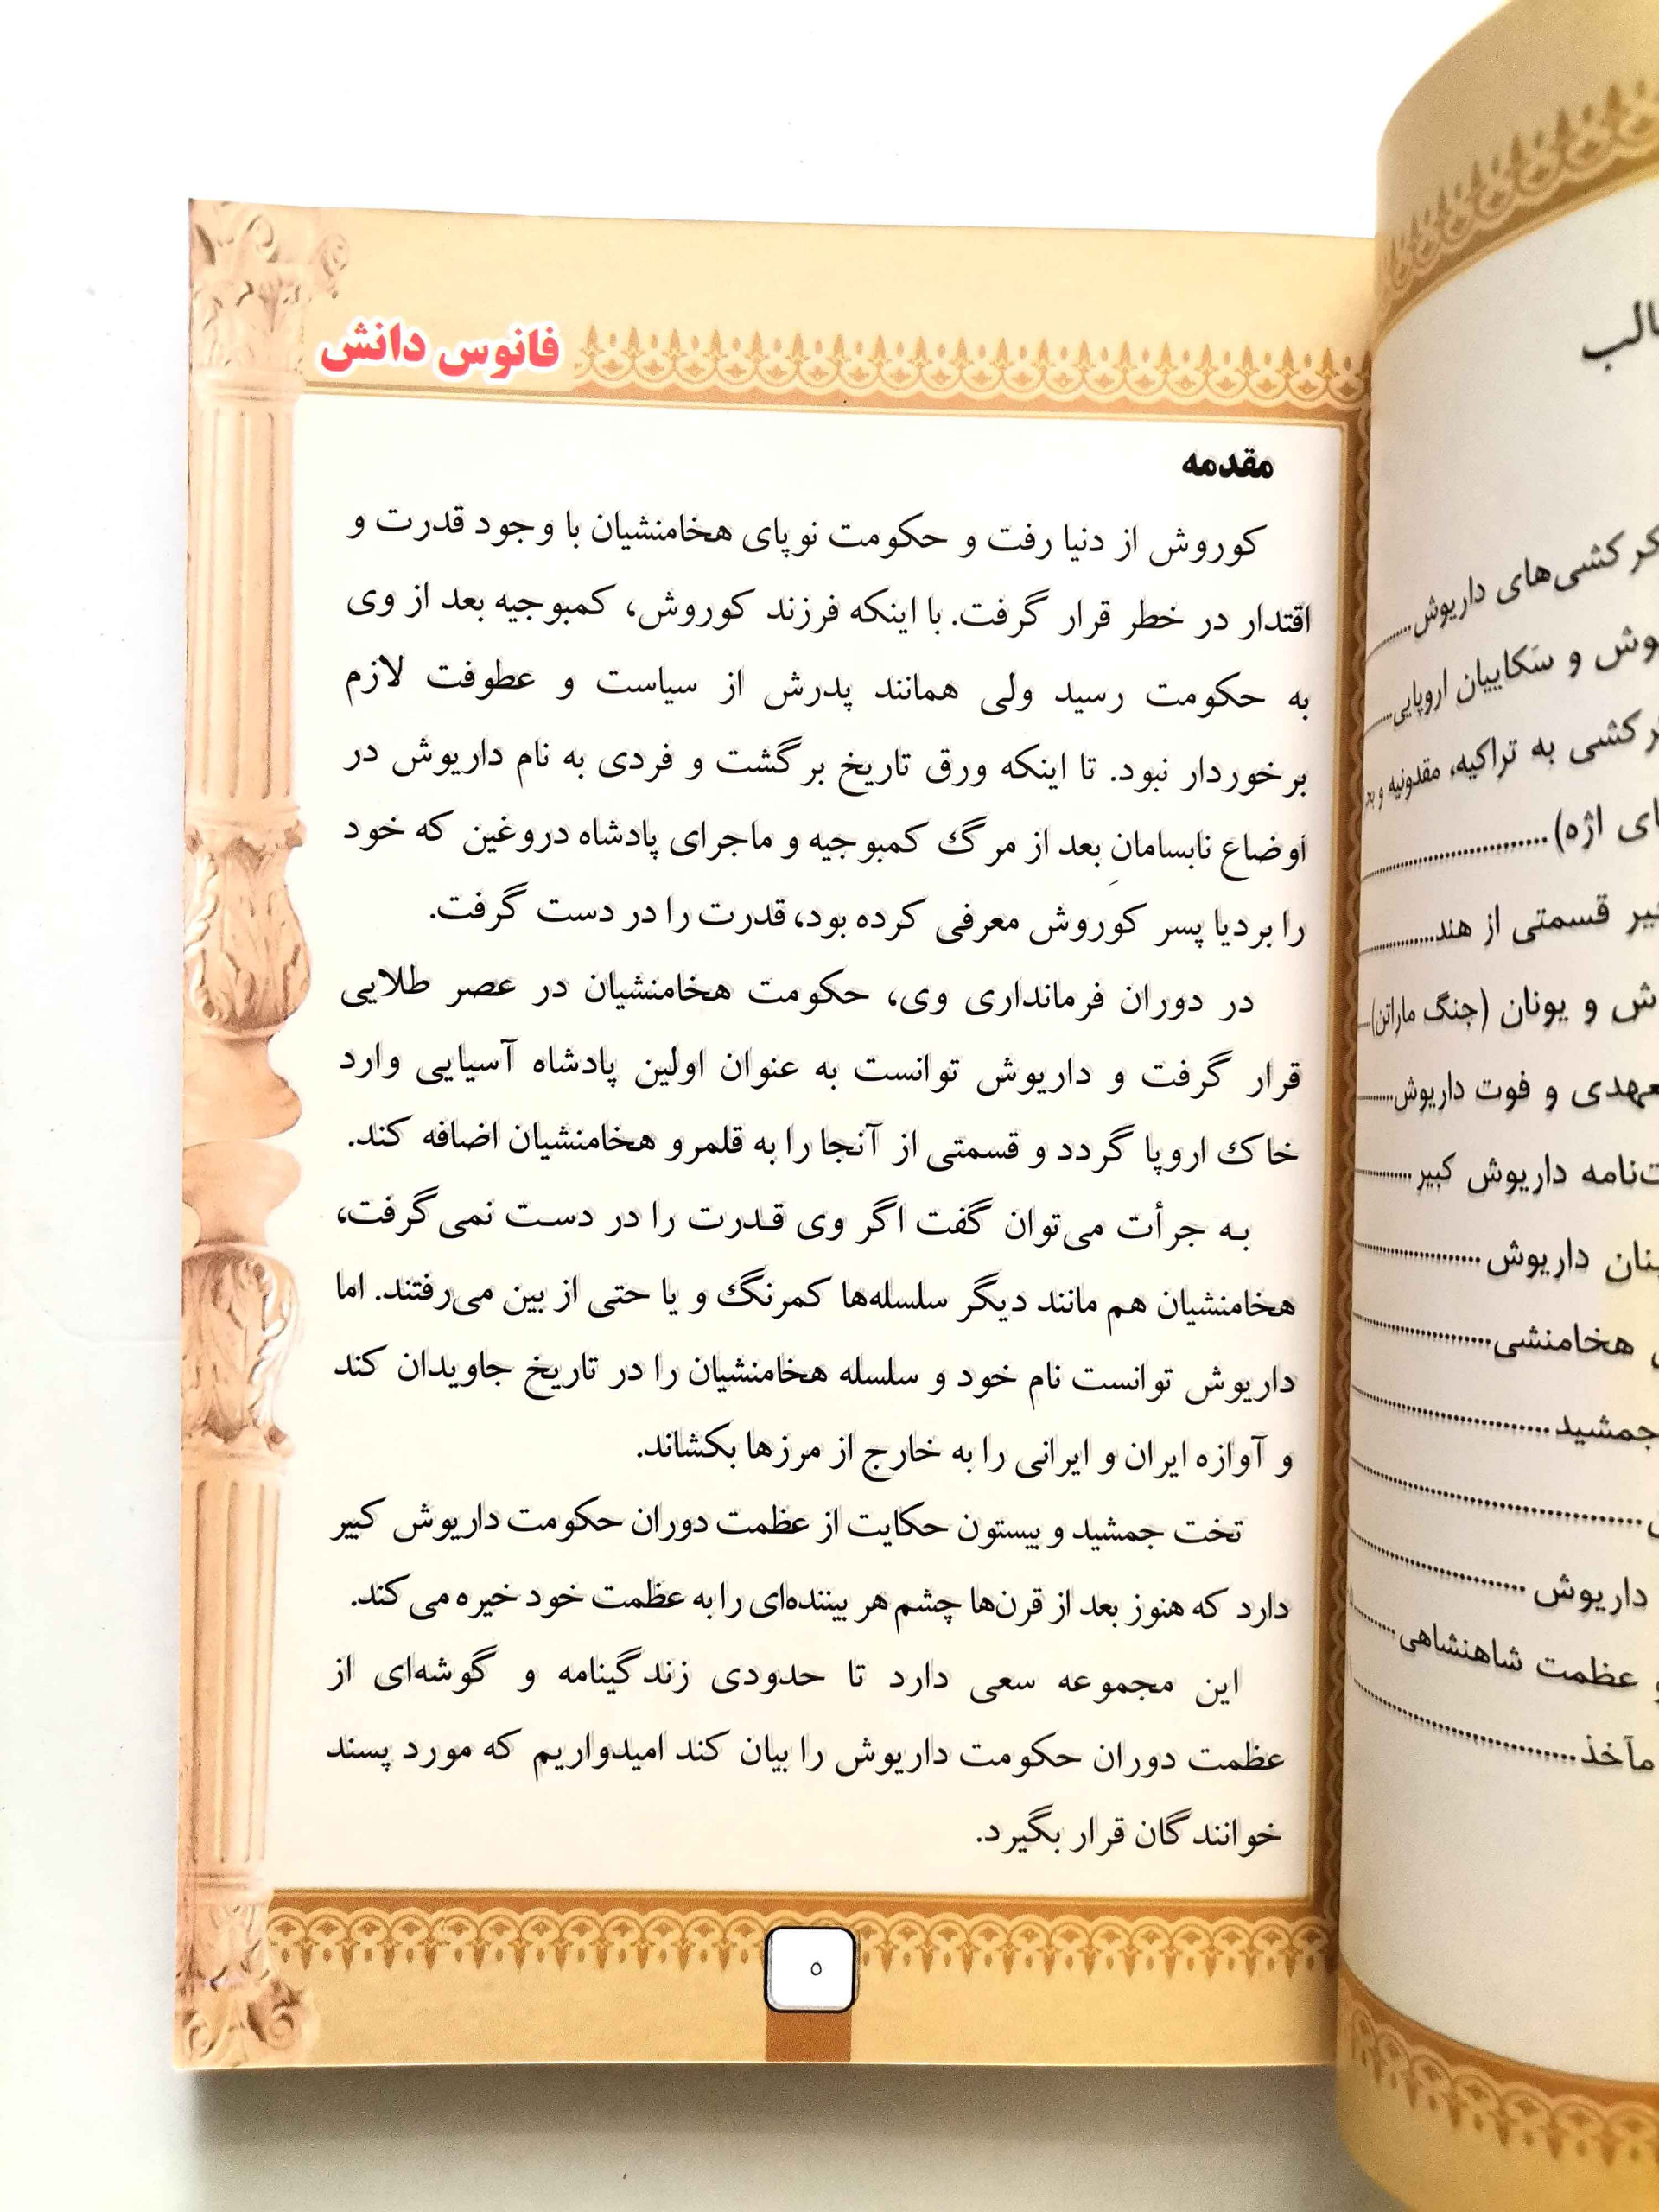 فانوس دانش
مقدمه
کوروش از دنیا رفت و حکومت نوپای هخامنشیان با وجود قدرت و
اقتدار در خطر قرار گرفت. با اینکه فرزند کوروش، کمبوجیه بعد از وی
به حکومت رسید ولی همانند پدرش از سیاست و عطوفت لازم
برخوردار نبود. تا اینکه ورق تاریخ برگشت و فردی به نام داریوش در
اوضاع نابسامانِ بعد از مرگ کمبوجیه و ماجرای پادشاه دروغین که خود
را بردیا پسر کوروش معرفی کرده بود، قدرت را در دست گرفت.
در دوران فرمانداری وی، حکومت هخامنشیان در عصر طلایی
قرار گرفت و داریوش توانست به عنوان اولین پادشاه آسیایی وارد
خاک اروپا گردد و قسمتی از آنجا را به قلمرو هخامنشیان اضافه کند.
به جرأت می‌توان گفت اگر وی قدرت را در دست نمی‌گرفت،
هخامنشیان هم مانند دیگر سلسله‌ها کمرنگ و یا حتی از بین می‌رفتند. اما
داریوش توانست نام خود و سلسله هخامنشیان را در تاریخ جاویدان کند
و آوازه ایران و ایرانی را به خارج از مرزها بکشاند.
تخت جمشید و بیستون حکایت از عظمت دوران حکومت داریوش کبیر
دارد که هنوز بعد از قرن‌ها چشم هر بیننده‌ای را به عظمت خود خیره می‌کند.
این مجموعه سعی دارد تا حدودی زندگینامه و گوشه‌ای از
عظمت دوران حکومت داریوش را بیان کند امیدواریم که مورد پسند
خوانندگان قرار بگیرد.
۵
داریوش
و سَکاییان اروپایی
به تراکیه، مقدونیه و
اژه)
قسمتی از هند
و یونان (جنگ ماراتن)
و فوت داریوش
داریوش کبیر
داریوش
هخامنشی
جمشید
داریوش
و عظمت شاهنشاهی
مآخذ